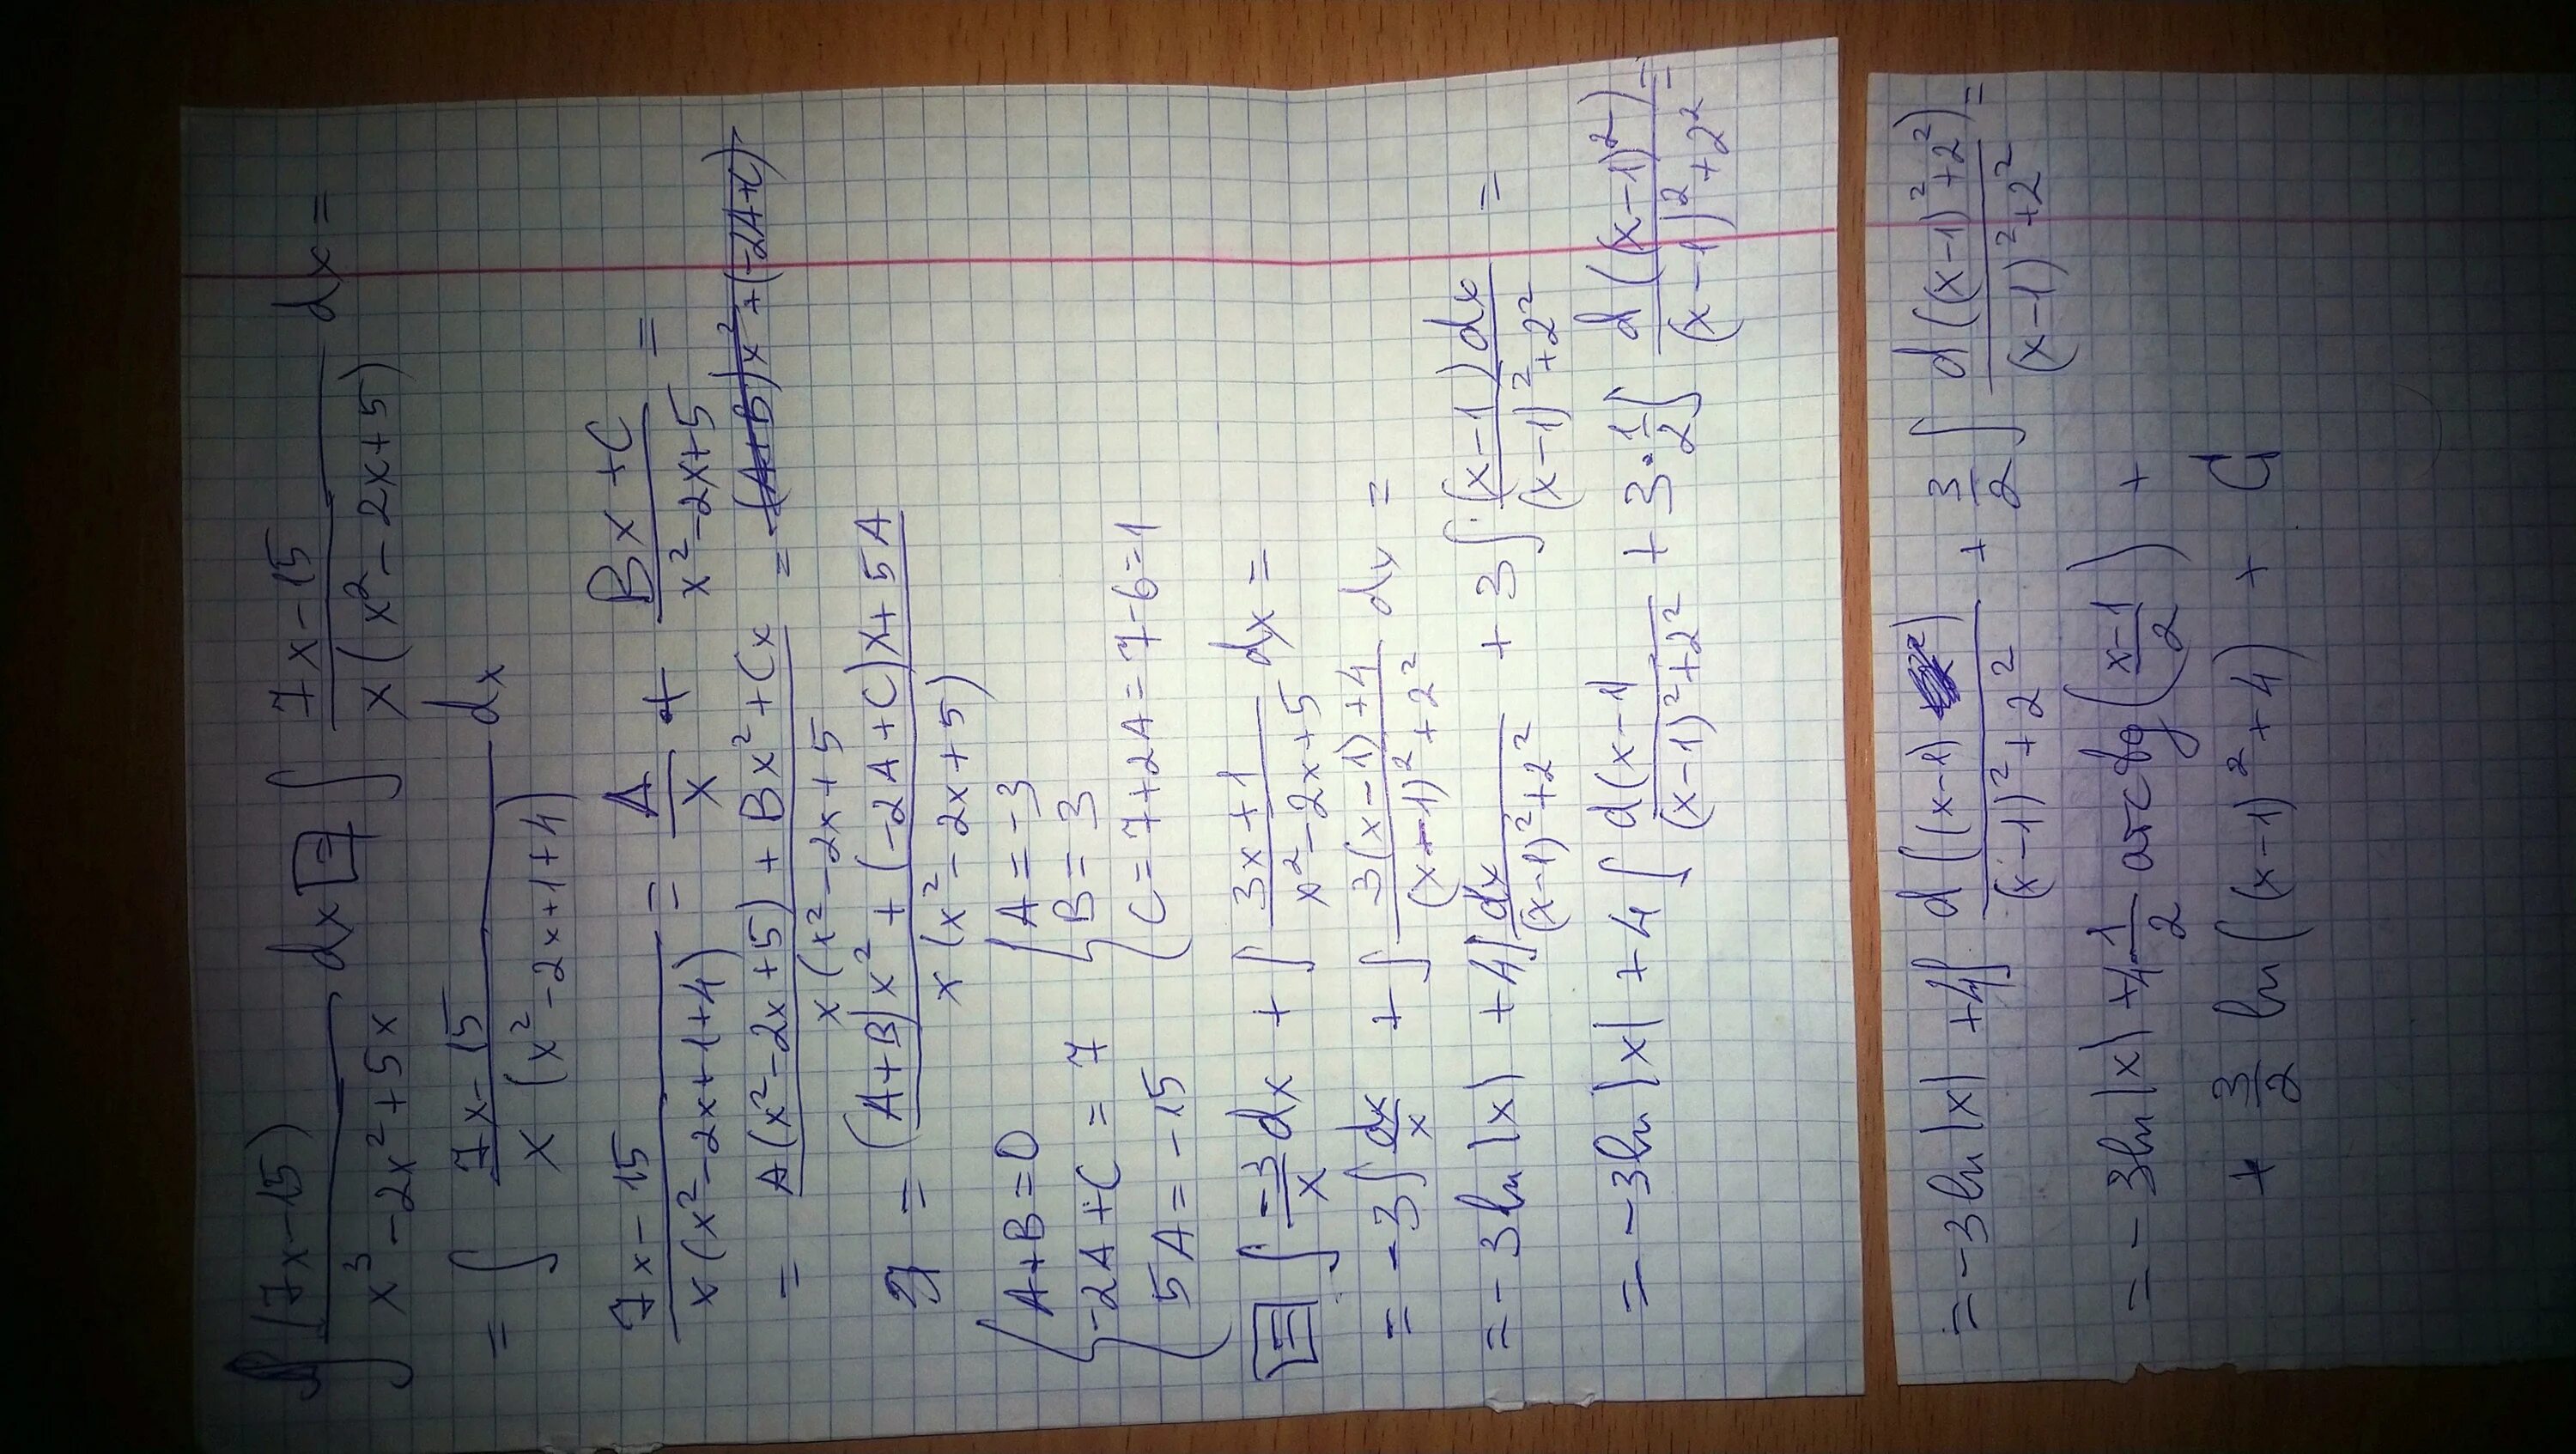 ∫ (7x-15) / (x³-2x²+5x) dx [=] ∫ (7x-15) / (x(x²-2x+5)) dx =
= ∫ (7x-15) / (x(x²-2x+1+4)) dx
(7x-15) / (x(x²-2x+1+4)) = A/x + (Bx+C) / (x²-2x+5) =
= (A(x²-2x+5) + Bx² + Cx) / (x(x²-2x+5) = (A+B)x² + (-2A+C)
= ((A+B)x² + (-2A+C)x + 5A) / (x(x²-2x+5))
{ A+B=0 { A=-3
-2A+C=7 B=3
5A=-15 C=7+2A=7-6=1
[=] ∫ -3/x dx + ∫ (3x+1) / (x²-2x+5) dx =
= -3∫ dx/x + ∫ (3(x-1)+4) / ((x-1)²+2²) dx =
= -3ln|x| + 4∫ dx / ((x-1)²+2²) + 3∫ (x-1)dx / ((x-1)²+2²) =
= -3ln|x| + 4∫ d(x-1 / ((x-1)²+2²) + 3·1/2 ∫ d((x-1)²) / ((x-1)²+2²) =
= -3ln|x| + 4∫ d((x-1) / ((x-1)²+2²) + 3/2 ∫ d((x-1)²+2²) / ((x-1)²+2²) =
= -3ln|x| + 4 1/2 arctg((x-1)/2) +
+ 3/2 ln((x-1)²+4) + C